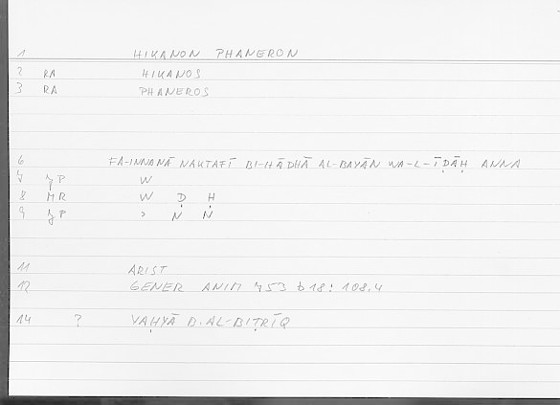 1 HIKANON PHANERON
2 RA HIKANOS
3 RA PHANEROS
6 FA-INNANĀ NAKTAFĪ BI-HĀDHĀ AL-BAYĀN WA-L-ĪḌĀḤ ANNA
7 ʒP W
8 MR W Ḍ Ḥ
9 ʒP ʾ N N
11 ARIST
12 GENER ANIM 753 b 18: 108.4
14 ? YAḤYĀ B. AL-BIṬRĪQ